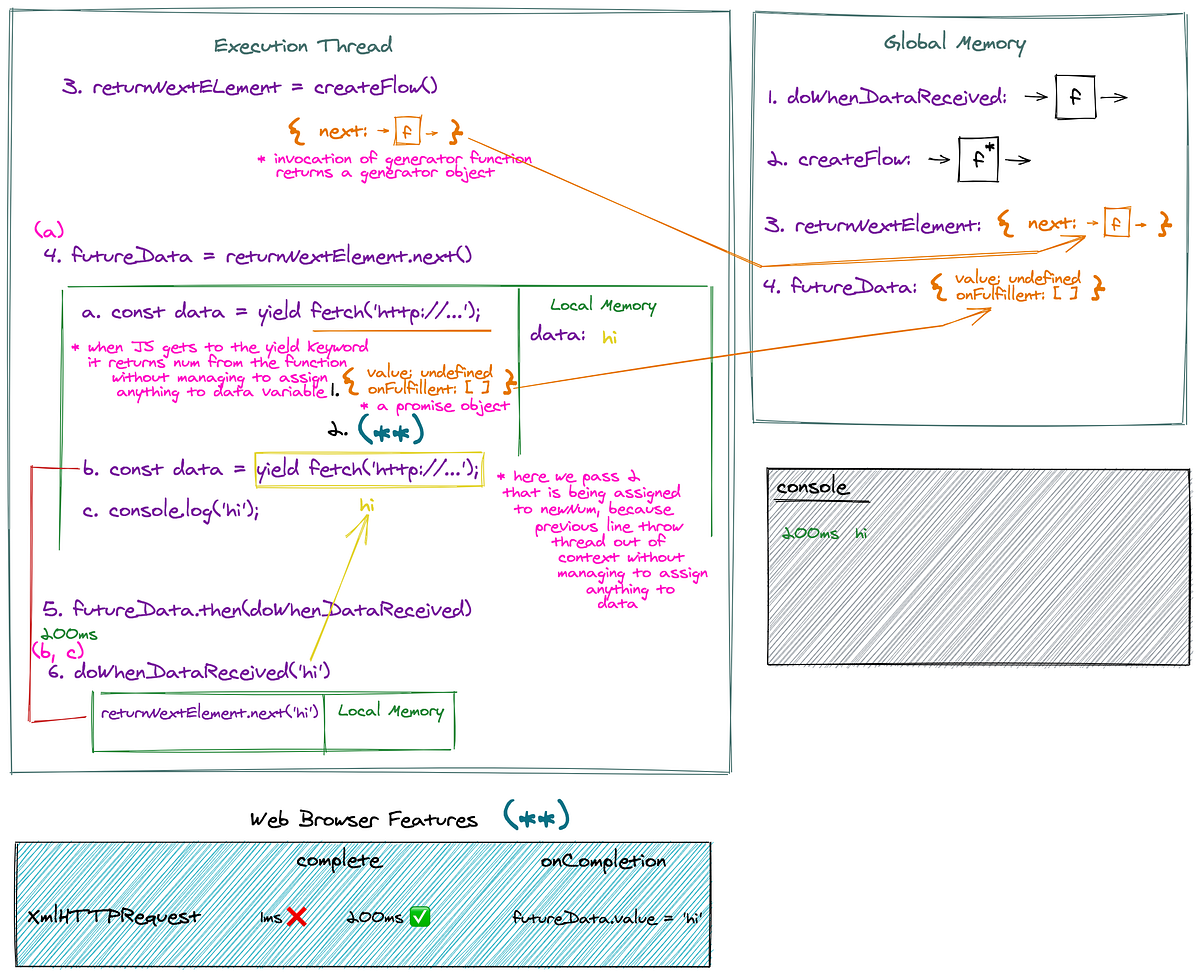 Execution Thread
3. returnNextELement = createFlow()
{ next: → f → }
* invocation of generator function
returns a generator object
(a)
4. futureData = returnNextElement.next()
a. const data = yield fetch('http://...');
* when JS gets to the yield keyword
it returns num from the function
without managing to assign
anything to data variable
1. { value: undefined
onFulfillent: [ ] }
* a promise object
2. (**)
Local Memory
data: hi
b. const data = yield fetch('http://...');
c. console.log('hi');
hi
* here we pass 2
that is being assigned
to newNum, because
previous line throw
thread out of
context without
managing to assign
anything to
data
5. futureData.then(doWhenDataReceived)
200ms
(b, c)
6. doWhenDataReceived('hi')
returnNextElement.next('hi')
Local Memory
Global Memory
1. doWhenDataReceived: → f →
2. createFlow: → f* →
3. returnNextElement: { next: → f → }
4. futureData: { value: undefined
onFulfillent: [ ] }
console
200ms hi
Web Browser Features (**)
complete onCompletion
XmlHTTPRequest 1ms ❌ 200ms ✅ futureData.value = 'hi'